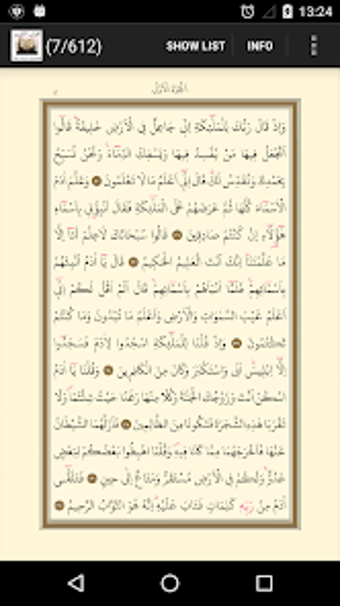 13:24
(7/612)
SHOW LIST
INFO
الجزء الأول
وَإِذْ قَالَ رَبُّكَ لِلْمَلٰٓئِكَةِ إِنِّي جَاعِلٌ فِي الْأَرْضِ خَلِيفَةً قَالُوا
أَتَجْعَلُ فِيهَا مَنْ يُفْسِدُ فِيهَا وَيَسْفِكُ الدِّمَاءَ وَنَحْنُ نُسَبِّحُ
بِحَمْدِكَ وَنُقَدِّسُ لَكَ قَالَ إِنِّي أَعْلَمُ مَا لَا تَعْلَمُونَ وَعَلَّمَ آدَمَ
الْأَسْمَاءَ كُلَّهَا ثُمَّ عَرَضَهُمْ عَلَى الْمَلٰٓئِكَةِ فَقَالَ أَنْبِئُونِي بِأَسْمَاءِ
هٰٓؤُلَاءِ إِنْ كُنْتُمْ صَادِقِينَ قَالُوا سُبْحَانَكَ لَا عِلْمَ لَنَا إِلَّا
مَا عَلَّمْتَنَا إِنَّكَ أَنْتَ الْعَلِيمُ الْحَكِيمُ قَالَ يَا آدَمُ أَنْبِئْهُمْ
بِأَسْمَائِهِمْ فَلَمَّا أَنْبَأَهُمْ بِأَسْمَائِهِمْ قَالَ أَلَمْ أَقُلْ لَكُمْ إِنِّي
أَعْلَمُ غَيْبَ السَّمٰوَاتِ وَالْأَرْضِ وَأَعْلَمُ مَا تُبْدُونَ وَمَا كُنْتُمْ
تَكْتُمُونَ وَإِذْ قُلْنَا لِلْمَلٰٓئِكَةِ اسْجُدُوا لِآدَمَ فَسَجَدُوا
إِلَّا إِبْلِيسَ أَبَى وَاسْتَكْبَرَ وَكَانَ مِنَ الْكَافِرِينَ وَقُلْنَا يَا آدَمُ
اسْكُنْ أَنْتَ وَزَوْجُكَ الْجَنَّةَ وَكُلَا مِنْهَا رَغَدًا حَيْثُ شِئْتُمَا وَلَا
تَقْرَبَا هٰذِهِ الشَّجَرَةَ فَتَكُونَا مِنَ الظَّالِمِينَ فَأَزَلَّهُمَا الشَّيْطَانُ
عَنْهَا فَأَخْرَجَهُمَا مِمَّا كَانَا فِيهِ وَقُلْنَا اهْبِطُوا بَعْضُكُمْ لِبَعْضٍ
عَدُوٌّ وَلَكُمْ فِي الْأَرْضِ مُسْتَقَرٌّ وَمَتَاعٌ إِلَى حِينٍ فَتَلَقَّى
آدَمُ مِنْ رَبِّهِ كَلِمَاتٍ فَتَابَ عَلَيْهِ إِنَّهُ هُوَ التَّوَّابُ الرَّحِيمُ